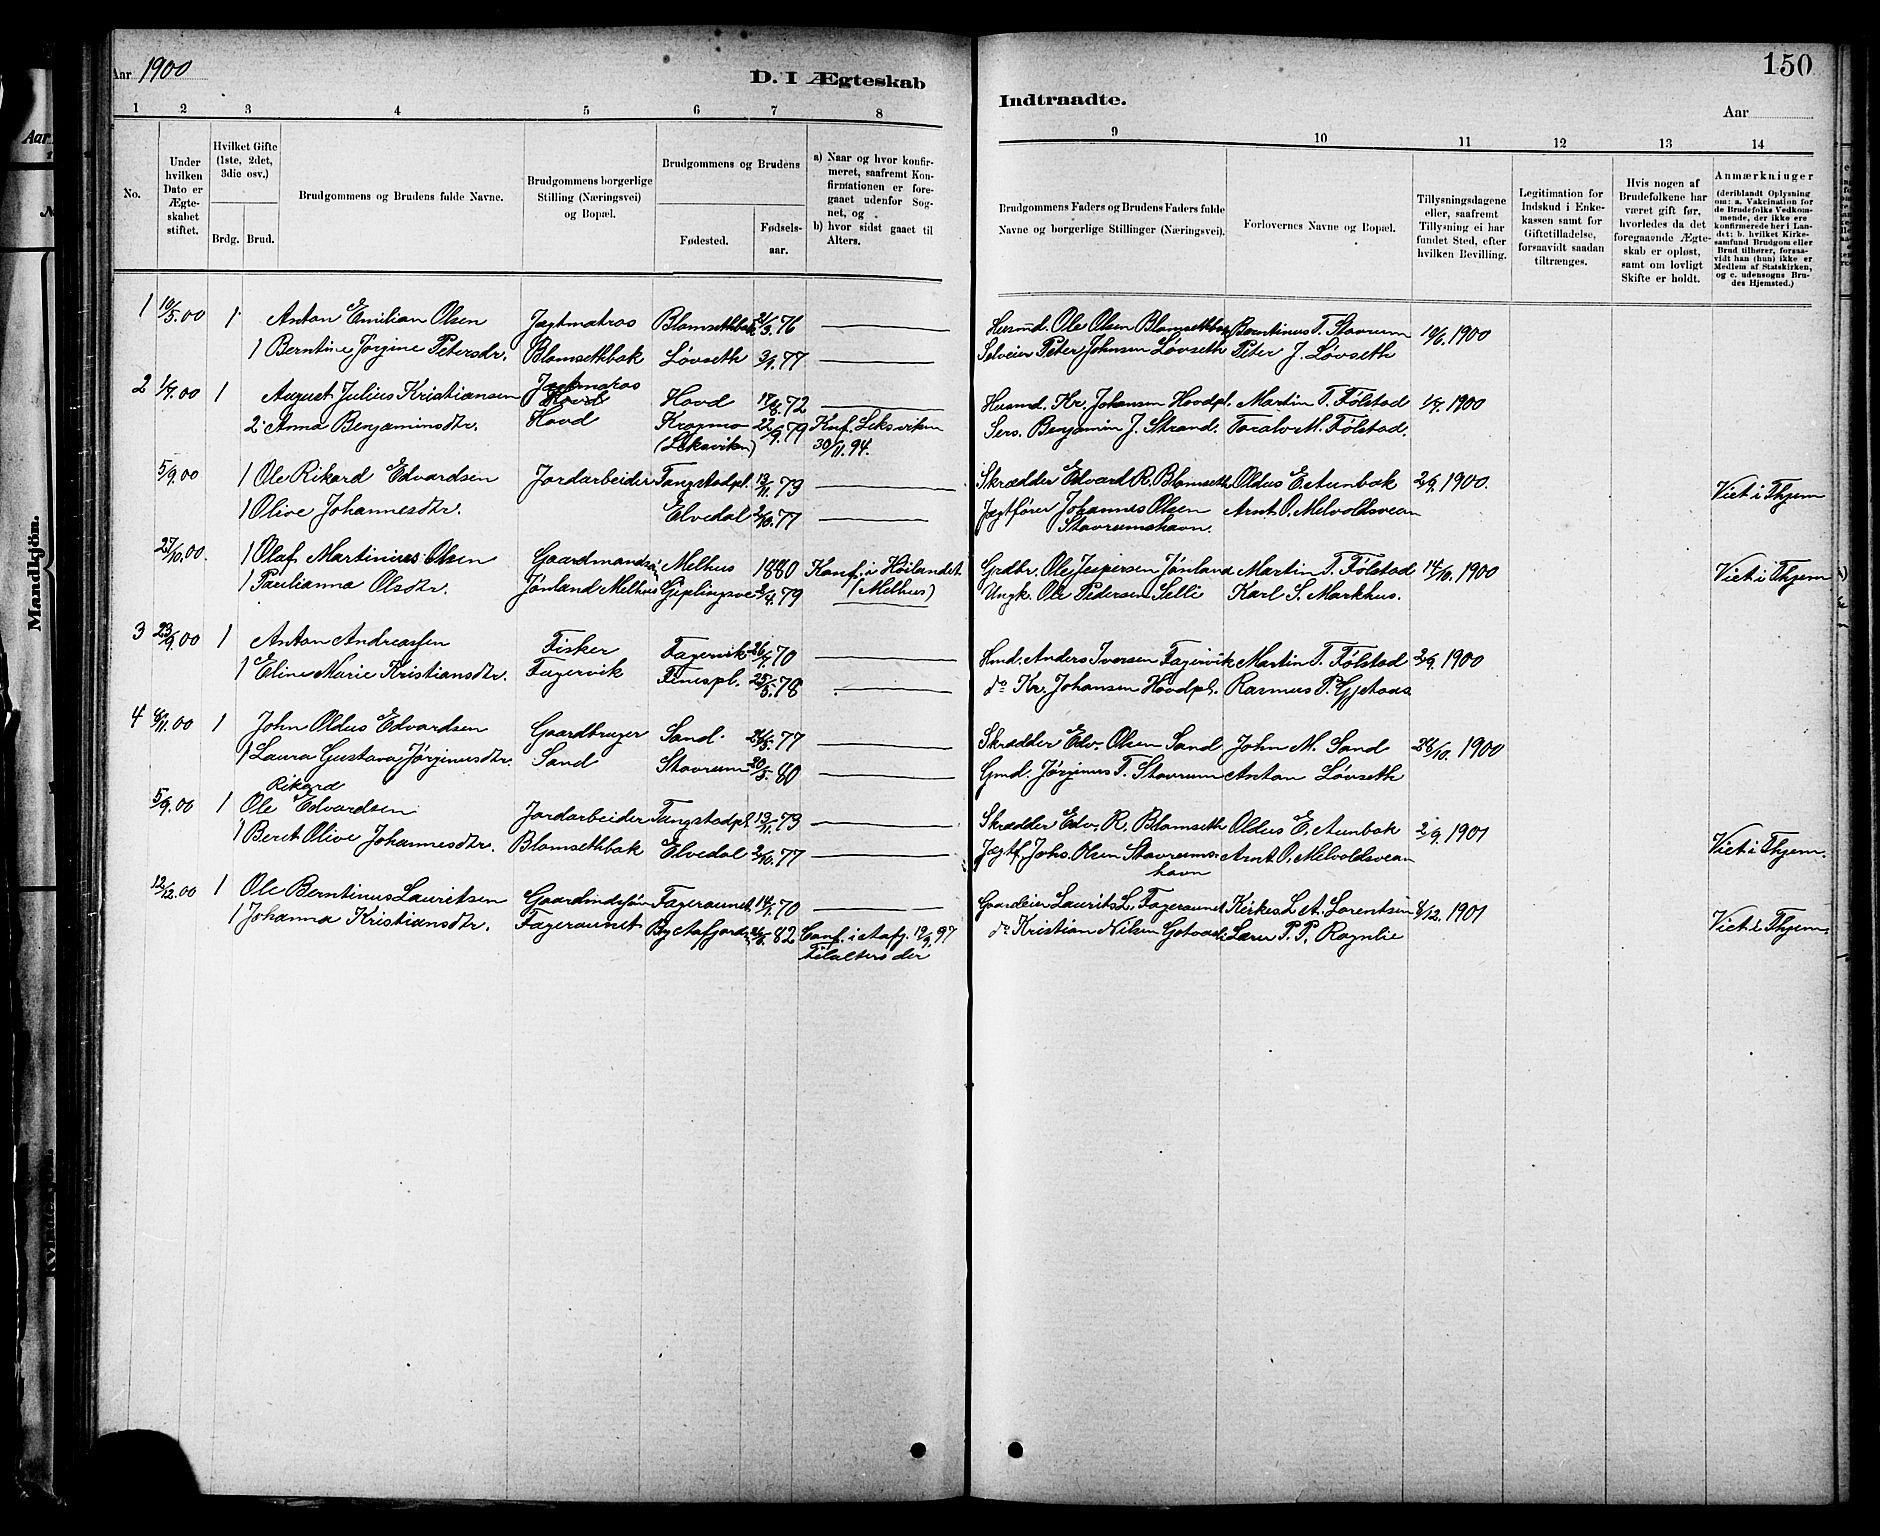 Aar 1900
D. I Ægteskab
Indtraadte.
150
Aar
1 2 3 4 5 6 7 8
9 10 11 12 13 14
No.
Under hvilken Dato er Ægteskabet stiftet.
Hvilket Gifte (1ste, 2det, 3die osv.)
Brdg. Brud.
Brudgommens og Brudens fulde Navne.
Brudgommens borgerlige Stilling (Næringsvei) og Bopæl.
Brudgommens og Brudens
Fødested.
Fødselsaar.
a) Naar og hvor konfirmeret, saafremt Konfirmationen er foregaaet udenfor Sognet, og
b) hvor sidst gaaet til Alters.
Brudgommens Faders og Brudens Faders fulde Navne og borgerlige Stillinger (Næringsvei).
Forlovernes Navne og Bopæl.
Tillysningsdagene eller, saafremt Tillysning ei har fundet Sted, efter hvilken Bevilling.
Legitimation for Indskud i Enkekassen samt for Giftetilladelse, forsaavidt saadan tiltrænges.
Hvis nogen af Brudefolkene har været gift før, hvorledes da det foregaaende Ægteskab er opløst, samt om lovligt Skifte er holdt.
Anmærkninger
(deriblandt Oplysning om: a. Vakcination for de Brudefolks Vedkommende, der ikke ere konfirmerede her i Landet; b. hvilket Kirkesamfund Brudgom eller Brud tilhører, forsaavidt han (hun) ikke er Medlem af Statskirken, og c. udensogns Brudes Hjemsted.)
1 10/5.00 1 Anton Emilian Olsen Jægtmatros Blomsethbak 21/3.76 Husmd. Ole Olsen Blomsethbak Berntinus T. Stavrum 10/6.1900
1 Berntine Jørgine Petersdr. Blomsethbak Løvseth 3/9.77 Selveier Peter Johnsen Løvseth Peter J. Løvseth
2 1/7.00 1 August Julius Kristiansen Jægtmatros Hovd 17/8.72 Husmd. Kr. Johansen Hovdpl. Martin T. Følstad 1/7.1900
2. Anna Benjaminsdtr. Hovd Kragmo 22/9.79 Knf. Leksviken Sers. Benjamin J. Strand. Toralv M. Følstad.
(Leksviken) 30/11.94.
5/9.00 1 Ole Rikard Edvardsen Jordarbeider Tangstadpl. 13/11.79 Skrædder Edvard R. Blomseth Oldus E. Aunbak 2/9.1900. Viet i Thjem
1 Olive Johannesdtr. Elvedal 2/10.77 Jægtfører Johannes Olsen Arnt O. Melvoldsvean
Stavrumshavn.
27/10.00 1 Olaf Martinius Olsen Gaardmandsøn Melhus 1880 Konf. i Høilandet Grdbr. Ole Jespersen Jønland Martin T. Følstad 14/10.1900 Viet i Thjem
1 Paulianna Olsdtr. Jønland Melhus 2/4.79 (Melhus) Ungk. Ole Pedersen Selli Karl S. Markhus.
3 23/9.00 1 Anton Andreassen Fisker Fagervik 26/7.70 Hmd. Anders Iversen Fagervik Martin T. Følstad 2/9.1900
1 Eline Marie Kristiansdtr. Fagervik Finespl. 25/5.78 do Kr. Johansen Hovdpl. Rasmus P. Gjetaas
4 4/11.00 1 John Oldus Edvardsen Gaardbruger Sand. 24/5.77 Skrædder Edv. Olsen Sand John M. Sand 28/10.1900
1 Laura Gustava Jørginusdtr. Sand Stavrum 20/5.80 Gmd. Jørginus T. Stavrum Anton Løvseth
Rikard
5/9.00 1 Ole Edvardsen Jordarbeider Tangstadpl. 13/11.73 Skrædder Edv. R. Blomseth Oldus E. Aunbak 2/9.1901 Viet i Thjem.
1 Beret Olive Johannesdtr. Blomsethbak Elvedal 2/10.77 Jægtf. Johs. Olsen Stavrums- Arnt O. Melvoldsvean
havn
12/12.00 1 Ole Berntinus Lauritsen Gaardmdsøn Fageraunet 14/1.70 Gaardeier Laurits L. Fageraunet Kirkes. L. A. Lorentsen 1901 Viet i Thjem.
1 Johanna Kristiansdtr. Fageraunet By Aafjord 82 Conf. i Aafj. 19/9.97 do Kristian Nilsen Lærer P. P. Rognlie
Tilalters der
Aar
Mandkjøn.